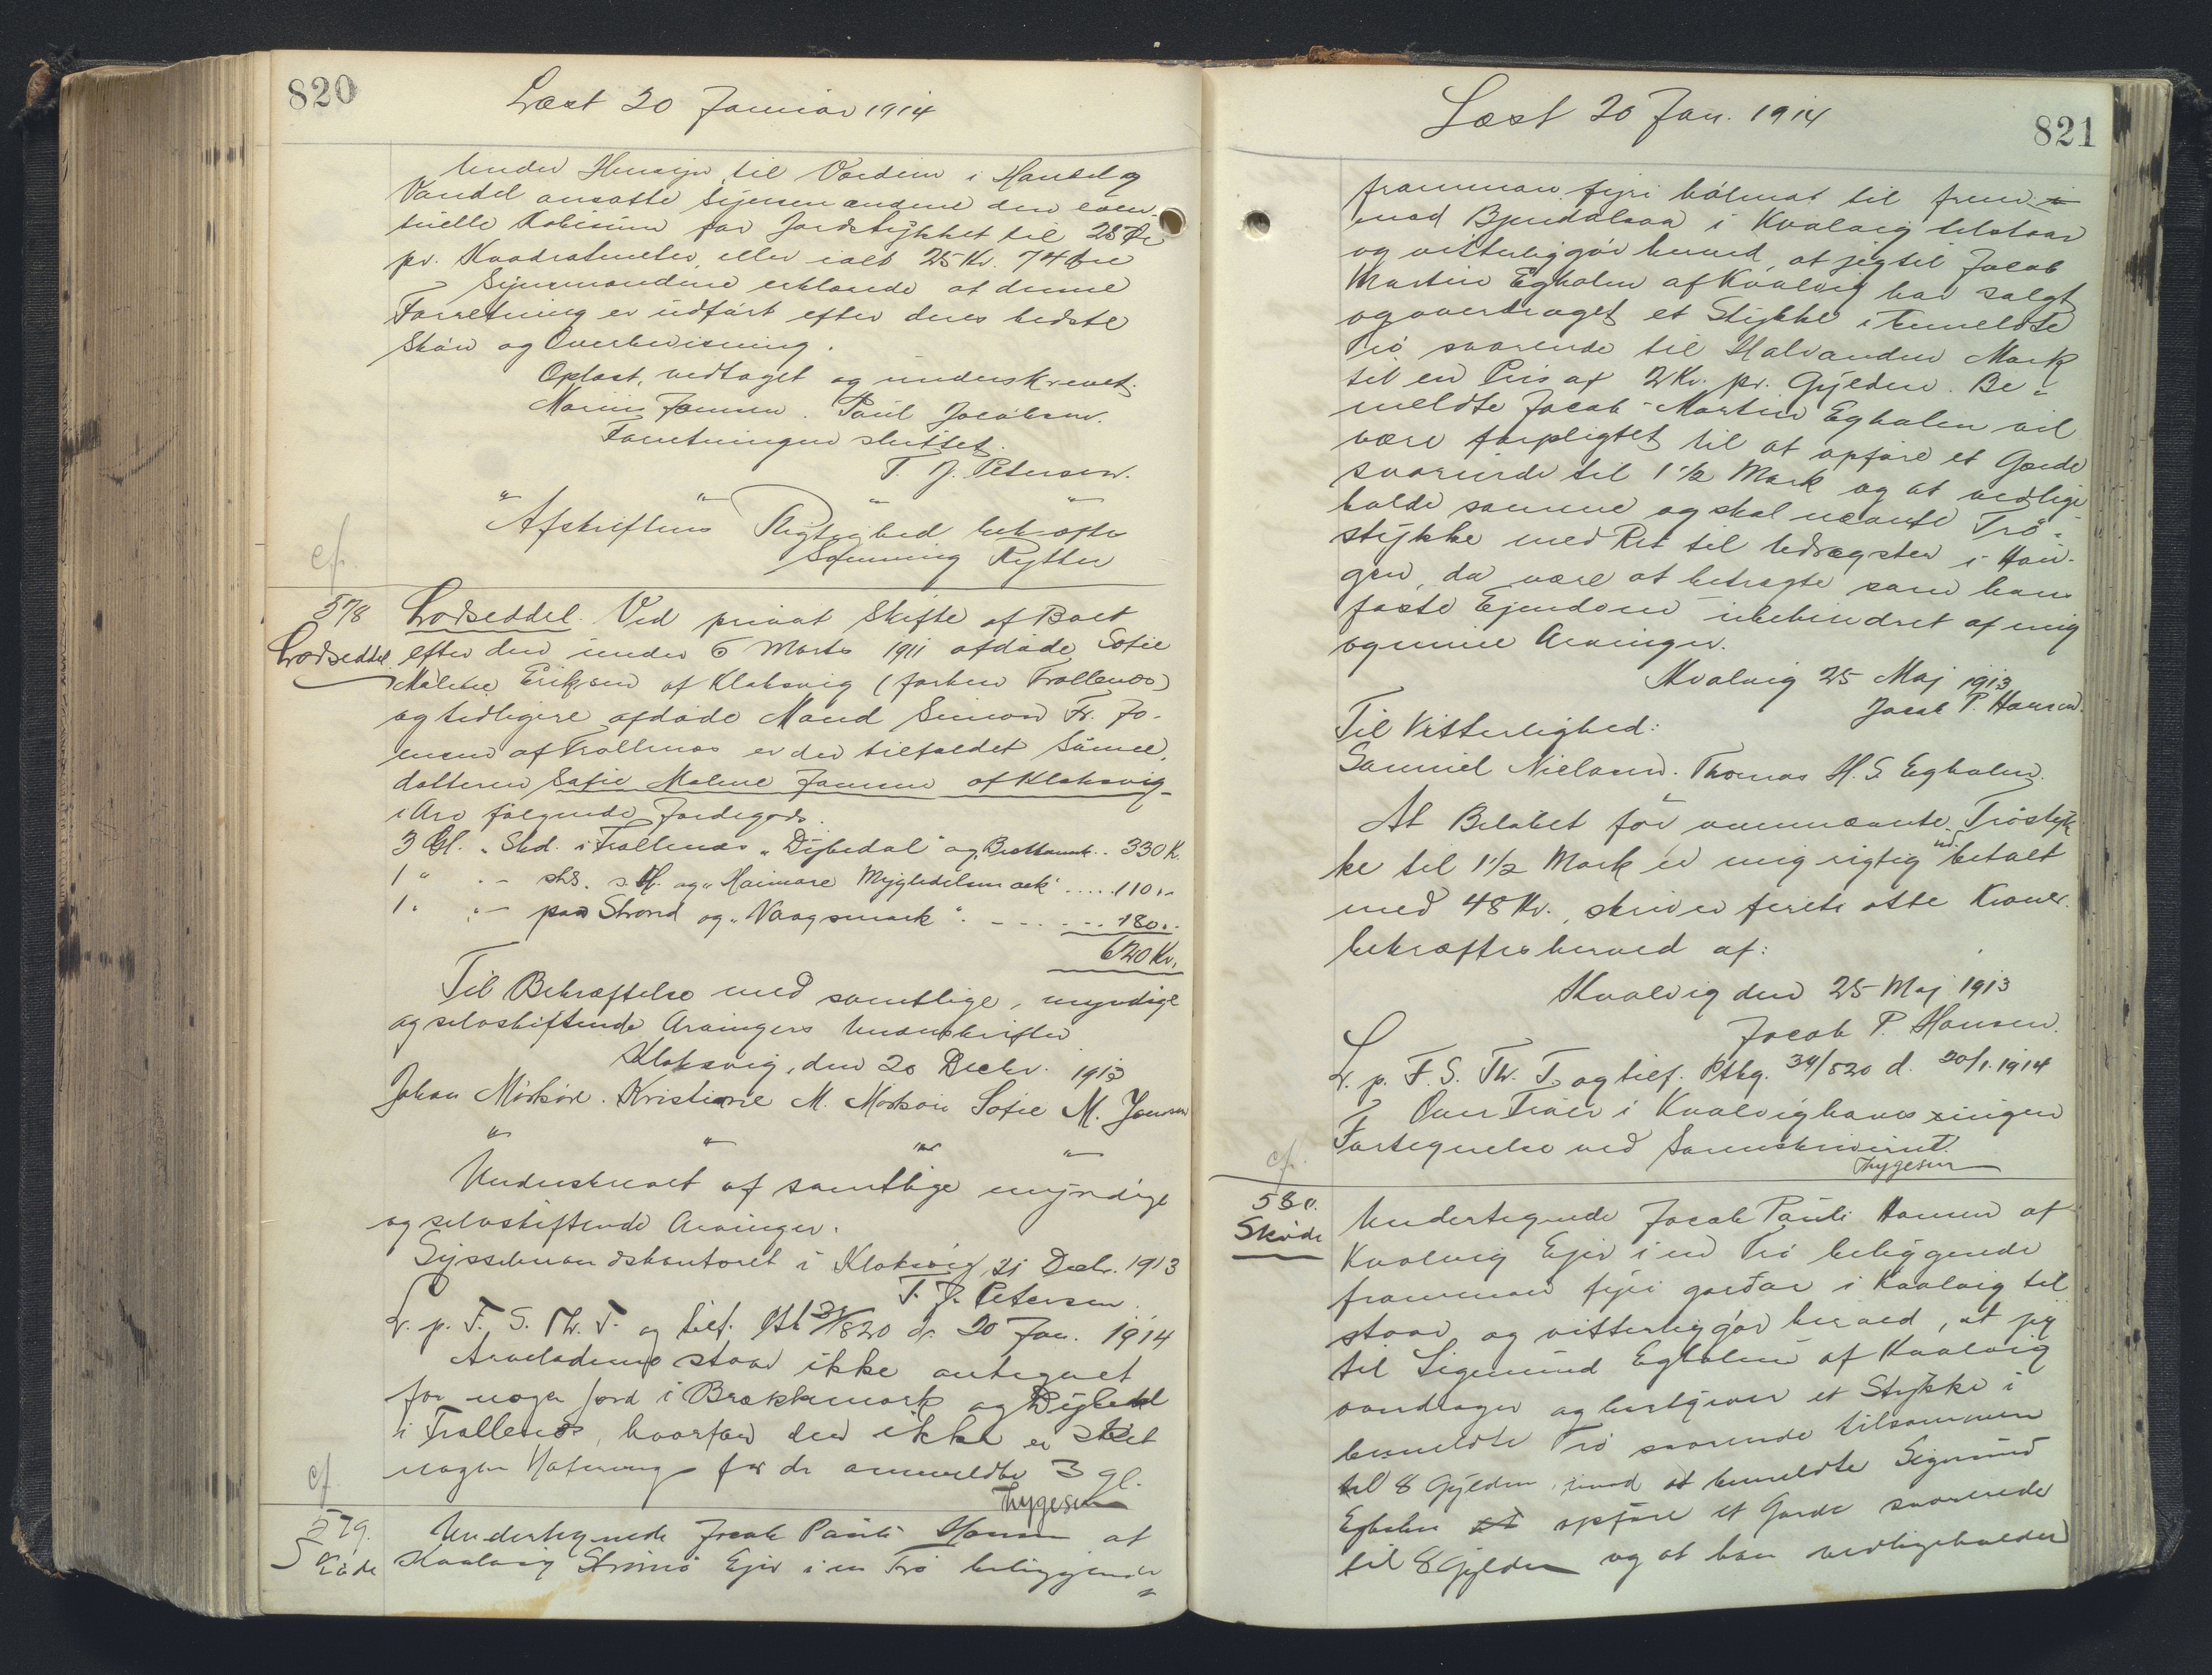 820
Læst 20 Januar 1914
Under Hensyn til Værdien i Handel og
Vandel ansatte Synsmændene den even-
tuelle Købesum for Jordstykket til 25 Øre
pr. Kvadratmeter eller ialt 25 Kr. 74 Øre
Synsmændene erklærede at denne
Forretning er udført efter deres bedste
Skøn og Overbevisning.
Oplæst, vedtaget og underskrevet.
Joensen. Paul Jacobsen.
Forretningen sluttet.
T. J. Petersen.
" " " "
Afskriftens Rigtighed bekræftes
Rytter
cf.
578
Lodseddel
Lodseddel. Ved privat Skifte af Boet
efter den under 6 Marts 1911 afdøde Sofie
Malene Eriksen af Klaksvig (forhen Trøllenæs)
og tidligere afdøde Mand Simon Fr. Jo-
ensen af Trøllenæs er der tilfaldet Sønne-
datteren Sofie Malene Joensen af Klaksvig
i Arv følgende Jordegods.
3 Gl. " Skd. i Trøllenæs "Dybedal" og 330 K.
1 " " - sts. s. St. og 110 "-
1 " " - paa Strond og "Vaagsmark" 180 "-
620 Kr.
Til Bekræftelse med samtlige, myndige
og selvskiftende Arvingers Underskrifter
Klaksvig, den 20 Decbr. 1913
Johan Mørkøre. Kristiane M. Mørkøre Sofie M. Joensen
" " " "
Underskrevet af samtlige myndige
og selvskiftende Arvinger.
Sysselmandskontoret i Klaksvig, 21 Decbr. 1913
T. J. Petersen.
L. p. F. S. Th. T. og tilf. Ptb 34/820 d. 20 Jan. 1914
Arveladerne staar ikke antegnet
for nogen Jord i Brekkemark og Dybedal
i Trøllenæs, hvorfor der ikke er sket
nogen Notering for de anmeldte 3 gl.
Thygesen
cf.
579.
Skøde
Undertegnede Jacob Pauli Hansen af
Kvalvig Strømø Ejer i en Trø beliggende
821
Læst 20 Jan. 1914
framman fyri til
mod i Kvalvig tilstaar
og vitterliggør herved, at jeg til Jacob
Martin Egholm af Kvalvig har solgt
og overdraget et Stykke i bemeldte
Trø svarende til Halvanden Mark
til en Pris af 2 Kr. pr. Gylden. Be-
meldte Jacob Martin Egholm vil
være forpligtet til at opføre et Gærde
svarende til 1 1/2 Mark og at vedlige
holde samme og skal nævnte Trø-
stykke med Ret til Uedrægster i Hau-
gen, da være at betragte som hans
faste Ejendom ubehindret af mig
og mine Arvinger.
Kvalvig 25 Maj 1913
Jacob P. Hansen.
Til Vitterlighed:
Samuel Nielsen. Thomas H. S Egholm.
At Beløbet for ovennævnte Trøstyk
ke til 1 1/2 Mark er mig rigtig ud betalt
med 48 Kr., skriver firti otte Kroner.
bekræftes herved af:
Kvalvig den 25 Maj 1913
Jacob P. Hansen.
L. p. F. S. Th. T. og tilf. Ptbg. 34/820 d. 20/1. 1914
Over Trøer i Kvalvig haves ingen
Fortegnelse ved Sorenskriveriet.
Thygesen
cf.
580.
Skøde
Undertegnede Jacob Pauli Hansen af
Kvalvig Ejer i en Trø beliggende
framman fyri garðar i Kvalvig til
staar og vitterliggør herved, at jeg
til Sigmund Egholm af Kvalvig
overdrager og bortgiver et Stykke i
bemeldte Trø svarende tilsammen
til 8 Gylden, imod at bemeldte Sigmund
Egholm opføre et Gærde svarende
til 8 Gylden og at han vedligeholder